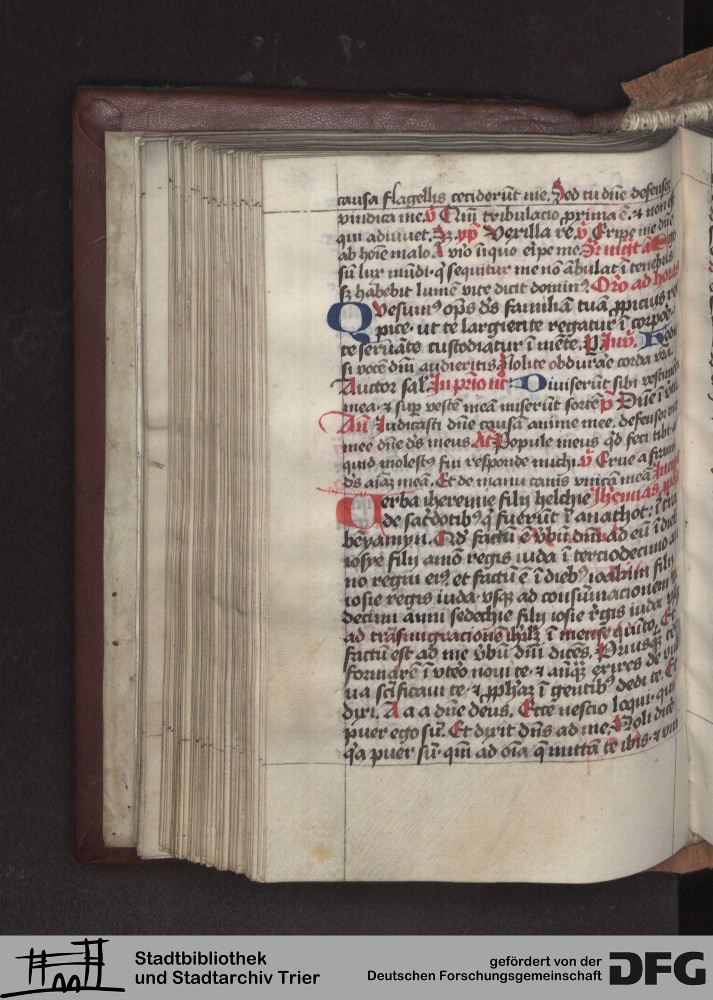 causa flagellis ceciderūt me. Sed tu dn̄e defensor
vindica me. v̄ Qm̄ tribulacio prima ē. & non est
qui adiuuet. R̄. yp̄ Vexilla re. v̄ Eripe me dn̄e
ab hoīe malo A viro īiquo eripe me Sr̄ mgt̄ a Ego
sū lux mūdi. q̄ sequitur me nō ābulat ī tenebris
sꝫ habebit lumē vite dicit dominꝰ. Or̄o ad horas
Qvesumꝰ op̄s ds̄ familiā tuā ꝓpicius re
spice. ut te largiente regatur ī corpoe. &
te seruāte custodiatur ī mēte. P Inv̄.
si vocē dn̄i audieritis Nolite obdurae corda vr̄a
Auctor sal. In prīo nt̄ Diuiserūt sibi vestimēta
mea. & sup vestē meā miserūt sortē p̄ Dn̄e ī
An̄ Iudicasti dn̄e causā anime mee. defensor
mee dn̄e ds̄ meus An̄ Popule meus qd̄ feci tibi
quid molestꝰ fui responde michi. v̄ Erue a
ds̄ aīaꝫ meā. Et de manu canis vnicā meā
Verba iheremie filij helchie Iheremias ꝓph̄a
de sac̄dotibꝰ q̄ fuerūt ī anathot: ī tr̄a
beyamyn. Qd̄ factū ē v̄bū dn̄i ad eū ī dieb
iosye filij amō regis iuda ī terciodecimo an
no regni eiꝰ et factū ē ī diebꝰ ioakim filij
iosie regis iuda vsqꝫ ad consūmacionem
decimi anni sedechie filij iosie rēgis iuda
ad trāsmigracionē ihrlꝫ ī mense quīto. Et
factū est ad me v̄bū dn̄i dicēs. Priusqꝫ te
formarē ī vtēo noui te. & anqꝫ exires de vul
ua sc̄ificaui te. & ꝓph̄aꝫ ī gentibꝰ dedi te. Et
dixi. A a a dn̄e deus. Ecce nescio loqui. quia
puer ego sū. Et dixit dn̄s ad me. Noli dice
q̄a puer sū. qm̄ ad oīa q̄ mittā te ibis. &
Stadtbibliothek
und Stadtarchiv Trier
gefördert von der
Deutschen Forschungsgemeinschaft DFG